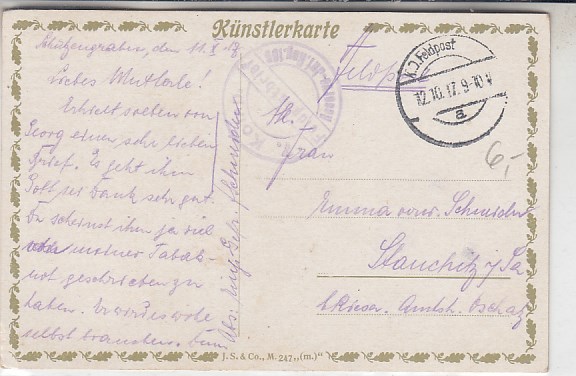 Künstlerkarte
Schützengraben, den 11.X.17
Liebes Mutterle!
Erhielt soeben von
Georg einen sehr lieben
Brief. Es geht ihm
Gott sei Dank sehr gut.
Du scheinst ihm ja viel
von meiner Tabak
not geschrieben zu
haben. Er wird es wohl
selbst brauchen.
Abs:
Feldpost
K.D. Feldpost
12.10.17. 9-10 V
a
An
Frau
Emma verw.
Stauchitz i/Sa
b. Riesa. Amtsh. Oschatz
6,-
J. S. & Co., M. 247 „(m.)"